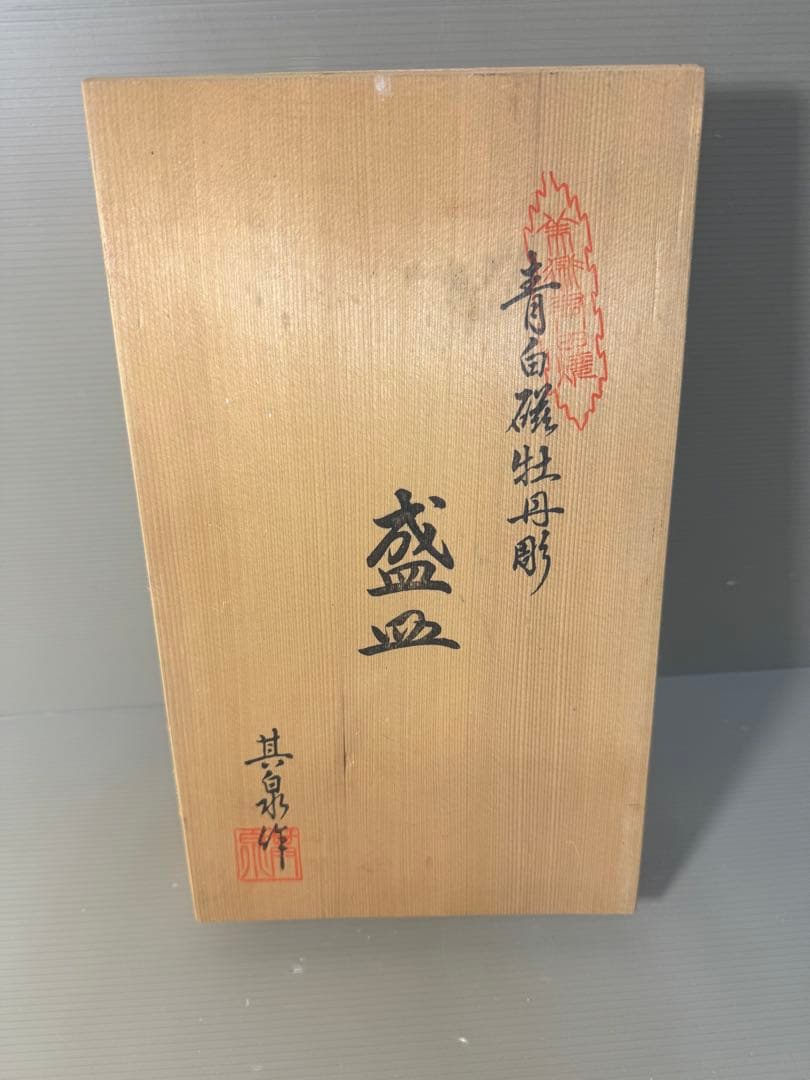 青白磁牡丹彫
盛皿
其泉作